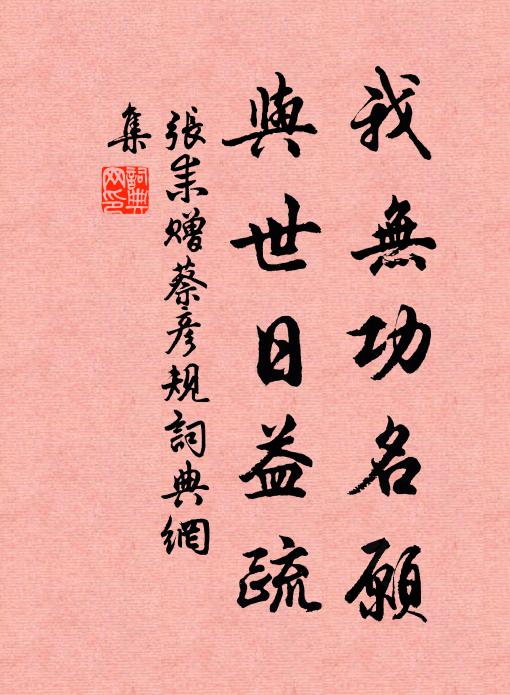 我無功名願
與世日益疏
張耒贈蔡彦規詞典網
集
詞典
网印